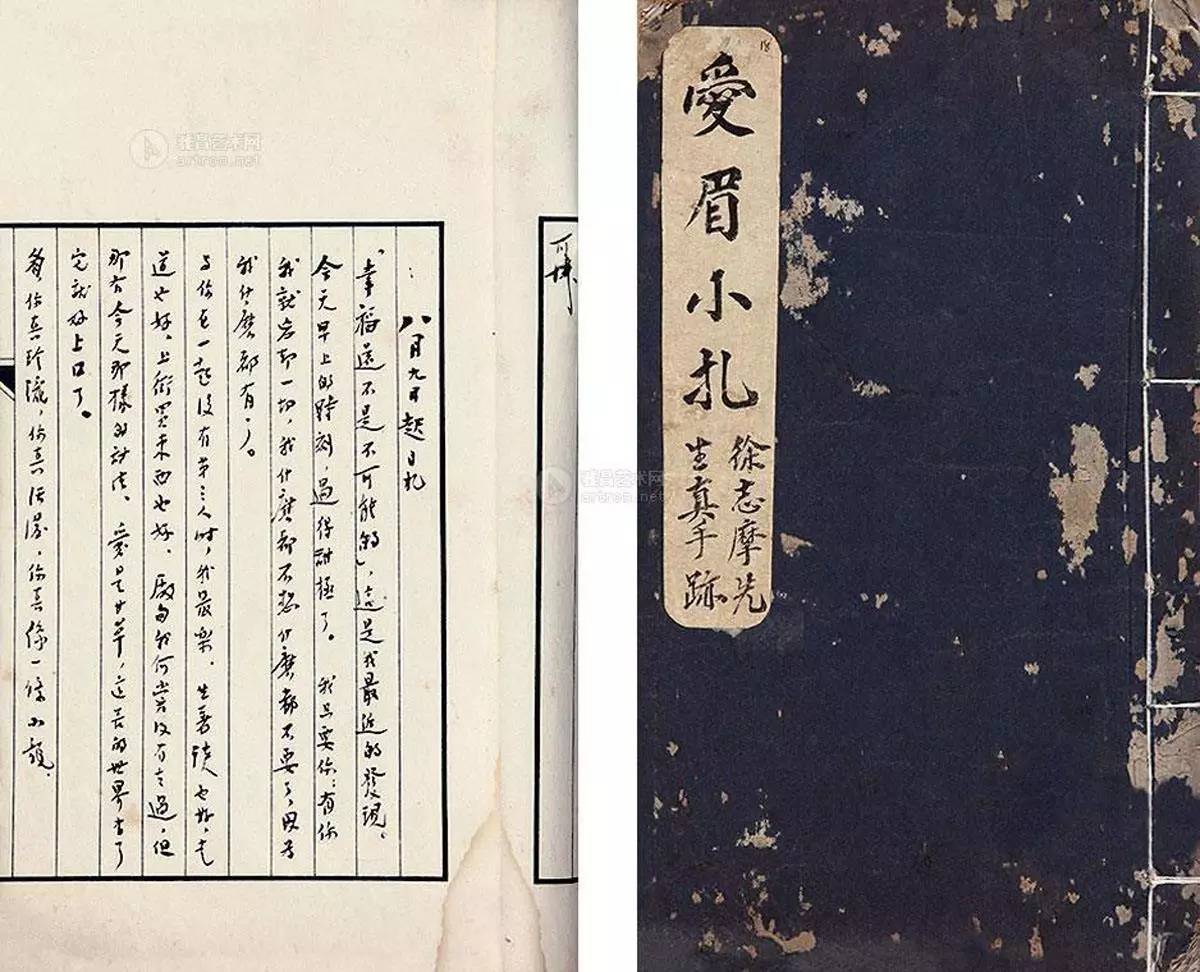 愛眉小札
徐志摩先
生真手跡
18
八月九日起日札
「幸福還不是不可能的」，這是我最近的發現。
今天早上的時刻，過得甜極了。 我只要你；有你
我就忘却一切，我什麽都不想什麽都不要了，因為
我什麽都有了。
與你在一起沒有第三人時，我最樂。 坐着談也好，走
道也好，上街買東西也好。 廠甸我何嘗沒有去過，但
那有今天那樣的甜法。 愛是甘草，這苦的世界有了
它就好上口了。
眉你真玲瓏，你真活潑，你真像一條小龍。
雅昌艺术网
artron.net
雅昌艺术网
artron.net